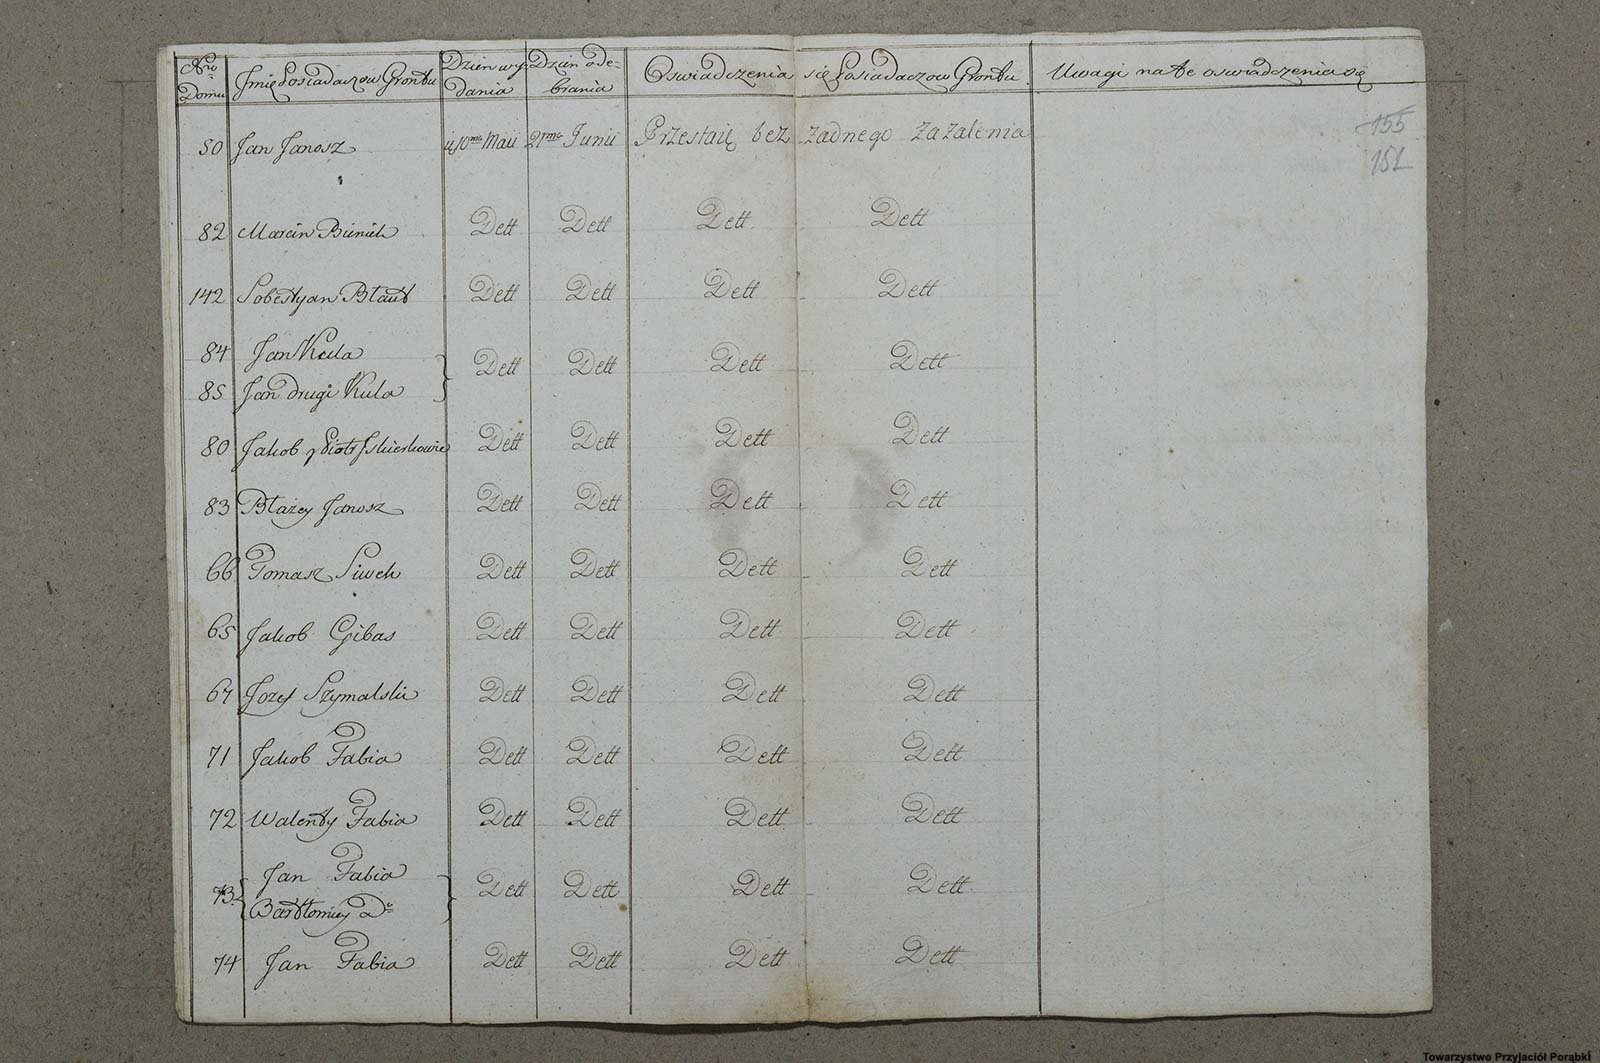 Nro Domu Imię Posiadaczow Grontu Dzien wydania Dzien odebrania Oswiadczenia się Posiadaczow Grontu Uwagi na te oswiadczenia się
155
151
50 Jan Janosz Maii 21ma Junii Przestaię bez żadnego zażalenia
82 Marcin Bieniek Dett Dett Dett Dett
142 Sobestyan Błaut Dett Dett Dett Dett
84 Jan Kula
85 Jan drugi Kula Dett Dett Dett Dett
80 Jakob y Piotr Dett Dett Dett Dett
83 Błażey Janosz Dett Dett Dett Dett
66 Tomasz Siwek Dett Dett Dett Dett
65 Jakob Gibas Dett Dett Dett Dett
67 Jozef Szymalski Dett Dett Dett Dett
71 Jakob Fabia Dett Dett Dett Dett
72 Walenty Fabia Dett Dett Dett Dett
73 Jan Fabia
Bartłomiey Do Dett Dett Dett Dett
74 Jan Fabia Dett Dett Dett Dett
Towarzystwo Przyjaciół Porąbki